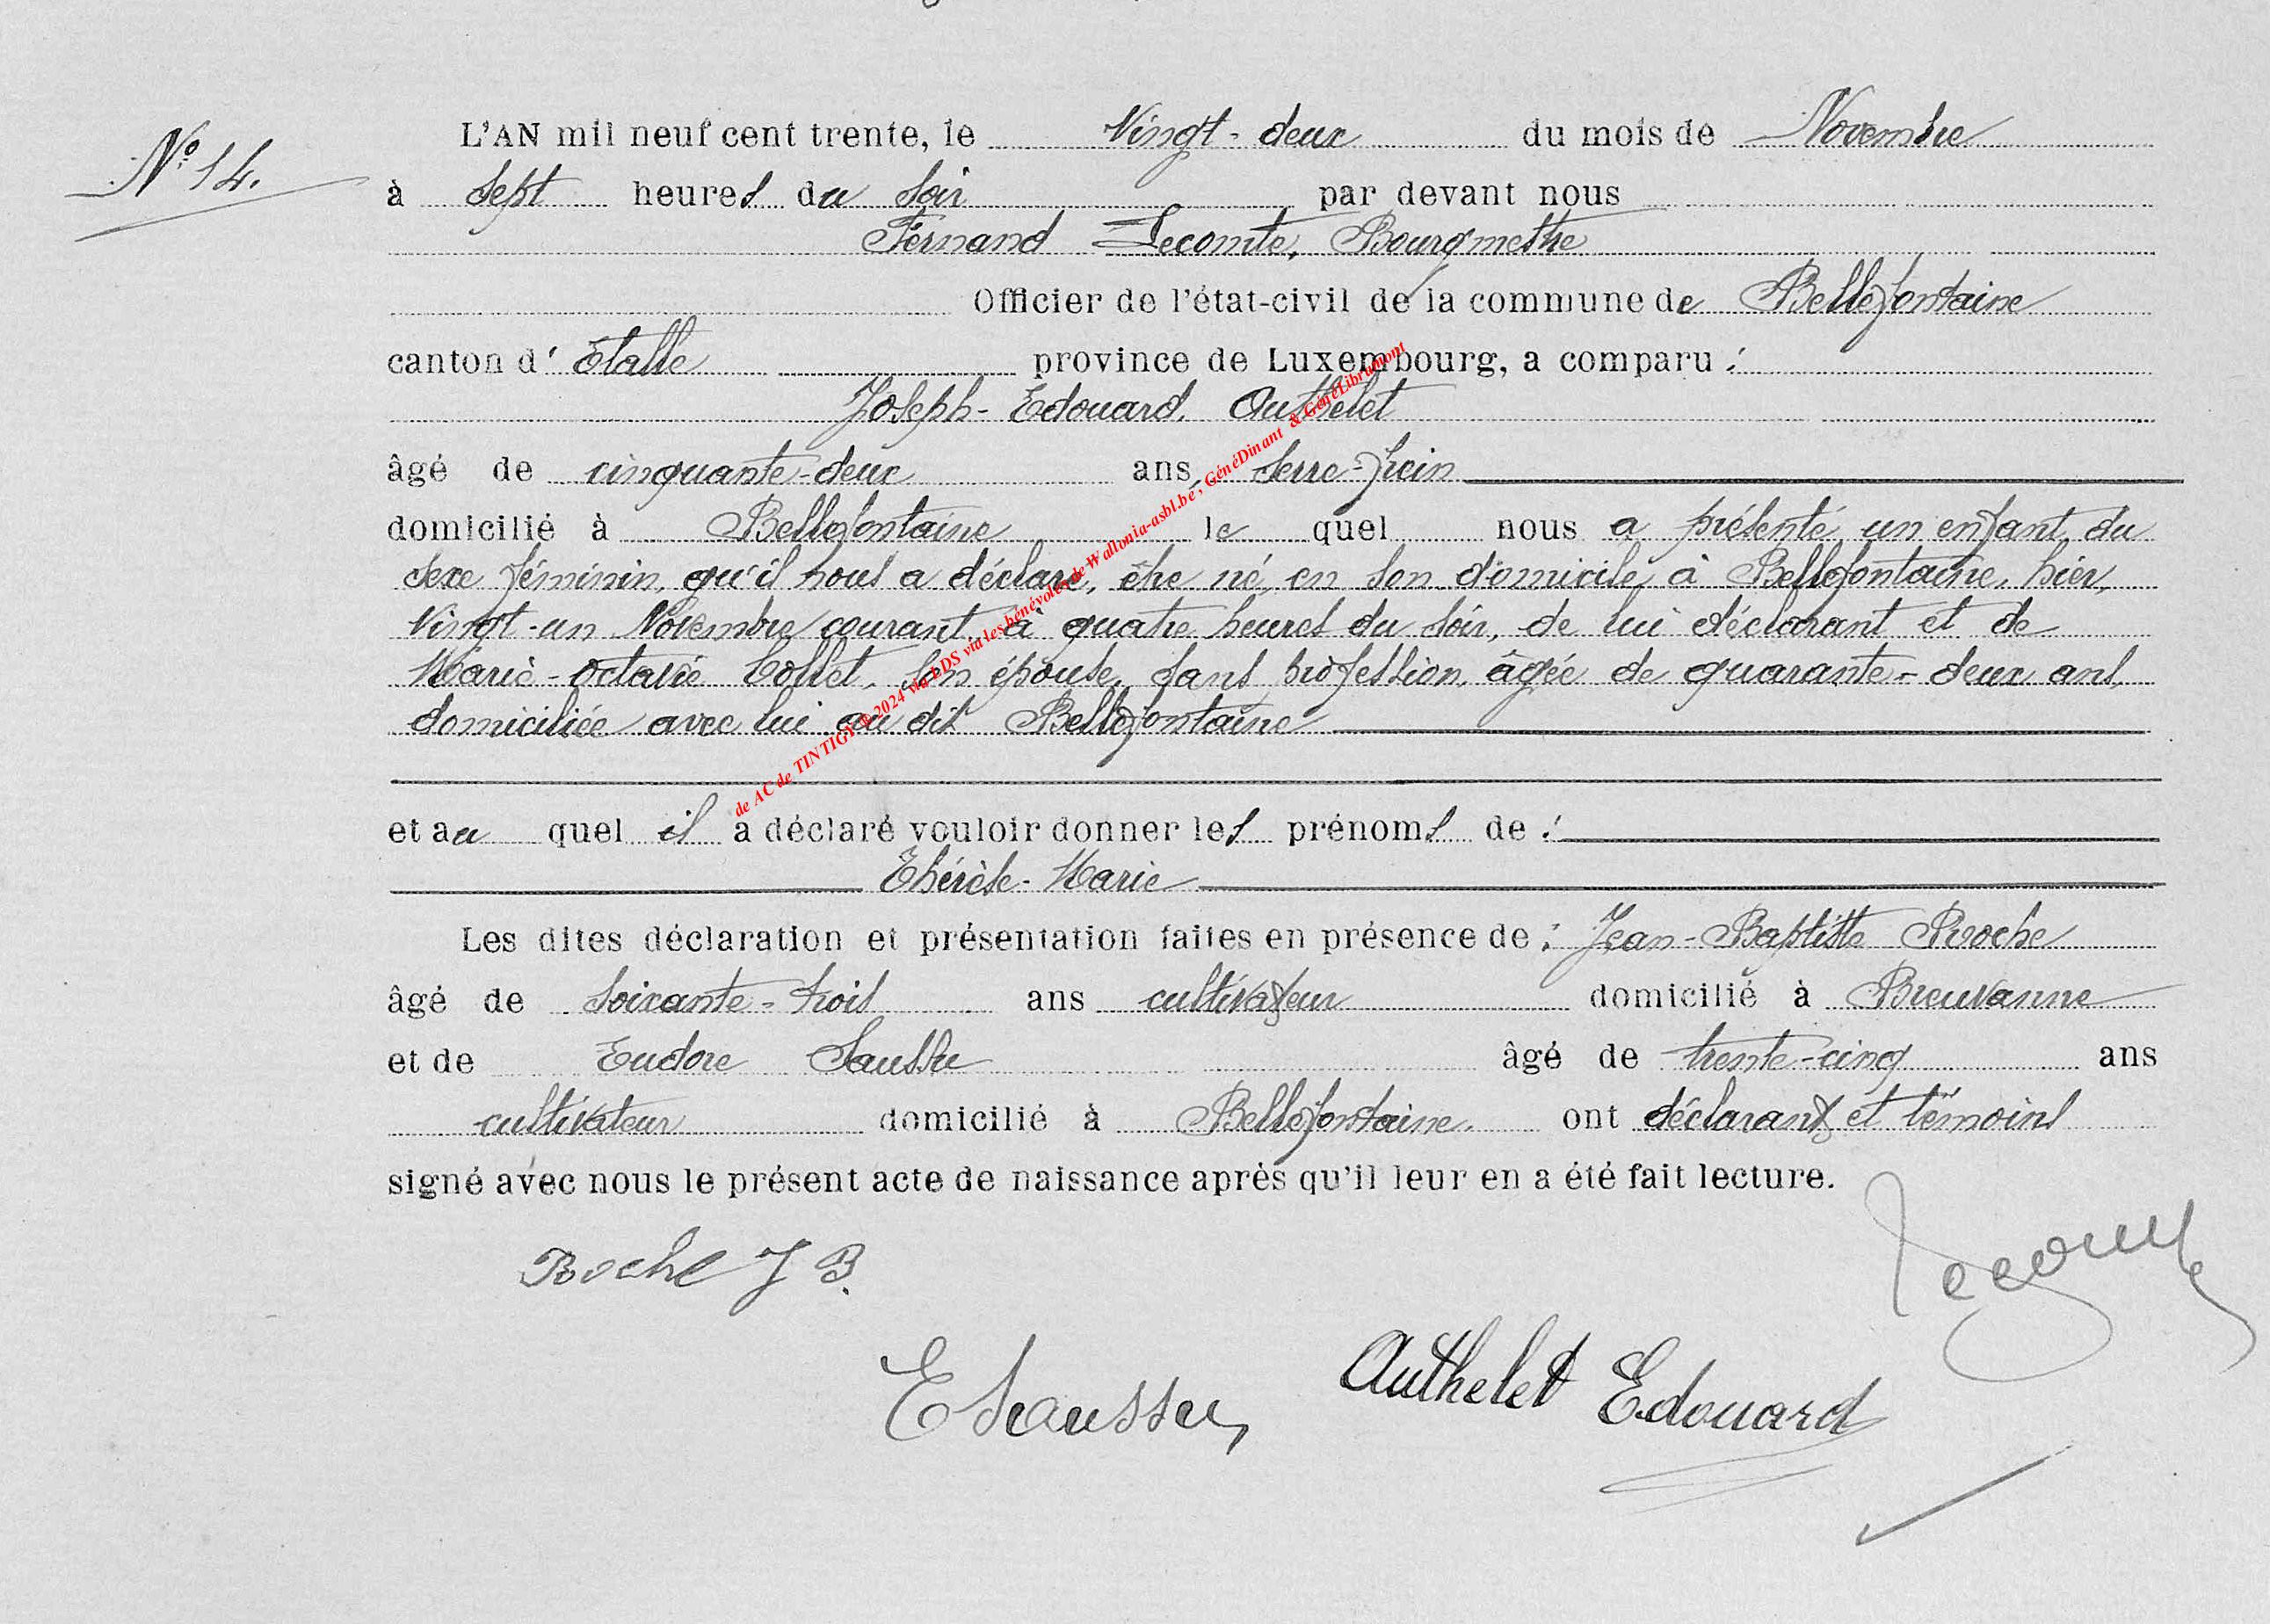 N° 14.
L'AN mil neuf cent trente, le Vingt-deux du mois de Novembre
à sept heures du soir par devant nous
Fernand Lecomte, Bourgmestre
Officier de l'état-civil de la commune de Bellefontaine
canton d' Etalle province de Luxembourg, a comparu :
Joseph-Edouard Authelet
âgé de cinquante-deux ans, serre-frein
domicilié à Bellefontaine le quel nous a présenté un enfant du
sexe féminin, qu'il nous a déclaré, être né, en son domicile à Bellefontaine, hier,
Vingt-un Novembre courant, à quatre heures du soir, de lui déclarant et de
Marie-Octavie Collet, son épouse, sans profession, âgée de quarante-deux ans,
domiciliée avec lui au dit Bellefontaine
et au quel il a déclaré vouloir donner les prénoms de :
Thérèse-Marie
Les dites déclaration et présentation faites en présence de : Jean-Baptiste Roche
âgé de soixante-trois ans cultivateur domicilié à Breuvanne
et de Eudore Saussu âgé de trente-cinq ans
cultivateur domicilié à Bellefontaine. ont déclarant et témoins
signé avec nous le présent acte de naissance après qu'il leur en a été fait lecture.
Roche J B.
Authelet Edouard
de AC de TINTIGY © 2024 via LDS via les bénévoles de Wallonia-asbl.be, GénéDinant & GénéLibramont